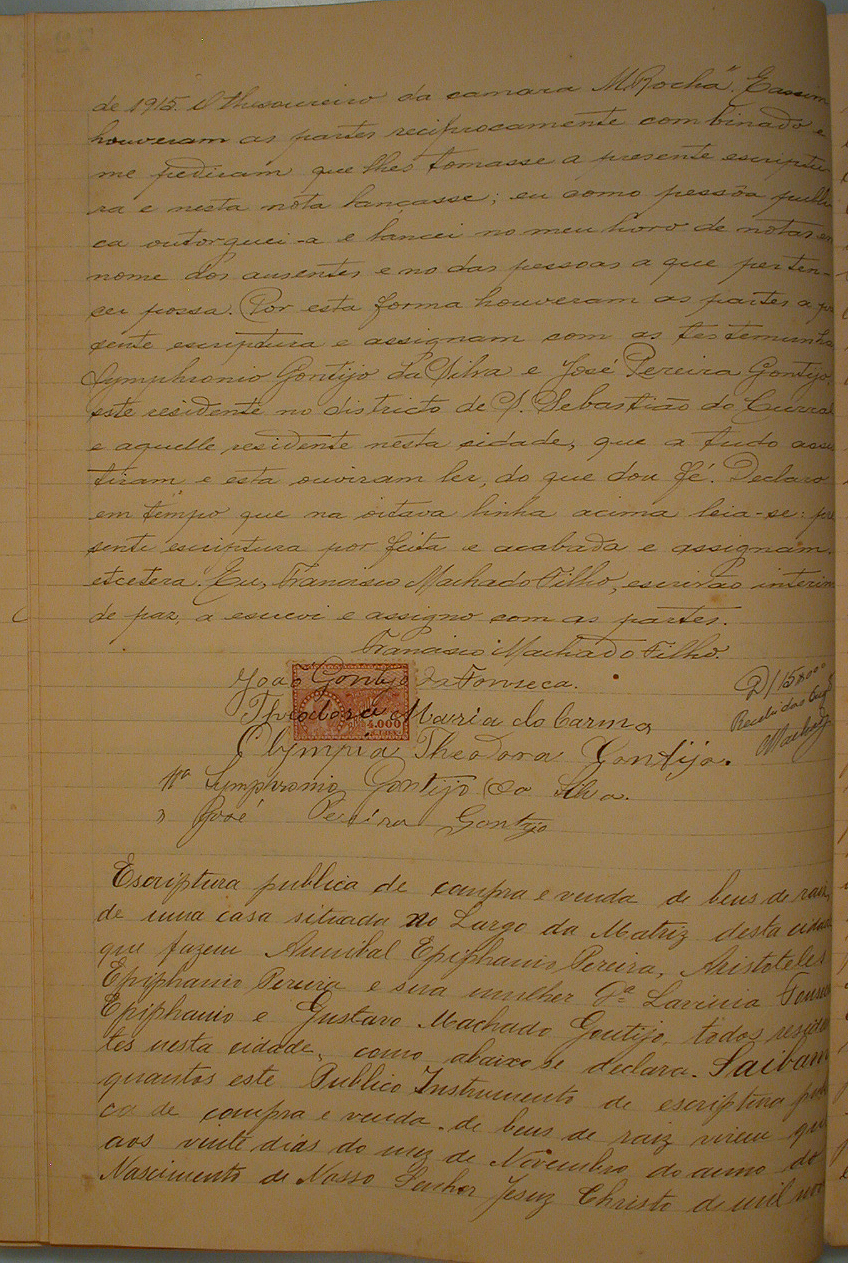 de 1915. O thesoureiro da camara M. Rocha". E assim
houveram as partes reciprocamente combinado e
me pediram que lhes tomasse a presente escriptu
ra e nesta nota lançasse; eu como pessôa publi
ca outorguei-a e lancei no meu livro de notas em
nome dos ausentes e no das pessoas a que perten-
cer possa. Por esta forma houveram as partes a pre
sente escriptura e assignam com as testemunhas
Symphronio Gontijo da Silva e José Pereira Gontijo,
este residente no districto de S. Sebastião do Curral
e aquelle residente nesta cidade, que a tudo assis
tiram e esta ouviram ler, do que dou fé. Declaro
em tempo que na oitava linha acima leia-se: pre
sente escriptura por feita e acabada e assignam.
etcetera. Eu, Francisco Machado Filho, escrivão interino
de paz, a escrevi e assigno com as partes.
Francisco Machado Filho.
João Gontijo da Fonseca.
Theodora Maria do Carmo
4.000
Olympia Theodora Gontijo.
D/ 15$000
Recebi dos
Machado
Symphronio Gontijo da Silva.
" José Pereira Gontijo
Escriptura publica de compra e venda de bens de raiz,
de uma casa situada no Largo da Matriz desta cidade,
que fazem Annibal Epiphanio Pereira, Aristoteles
Epiphanio Pereira e sua mulher Dª Lavinia Fonseca
Epiphanio e Gustavo Machado Gontijo, todos residen
tes nesta cidade, como abaixo se declara. Saibam
quantos este Publico Instrumento de escriptura publi
ca de compra e venda de bens de raiz virem que
aos vinte dias do mez de Novembro do anno do
Nascimento de Nosso Senhor Jesuz Christo de mil nove